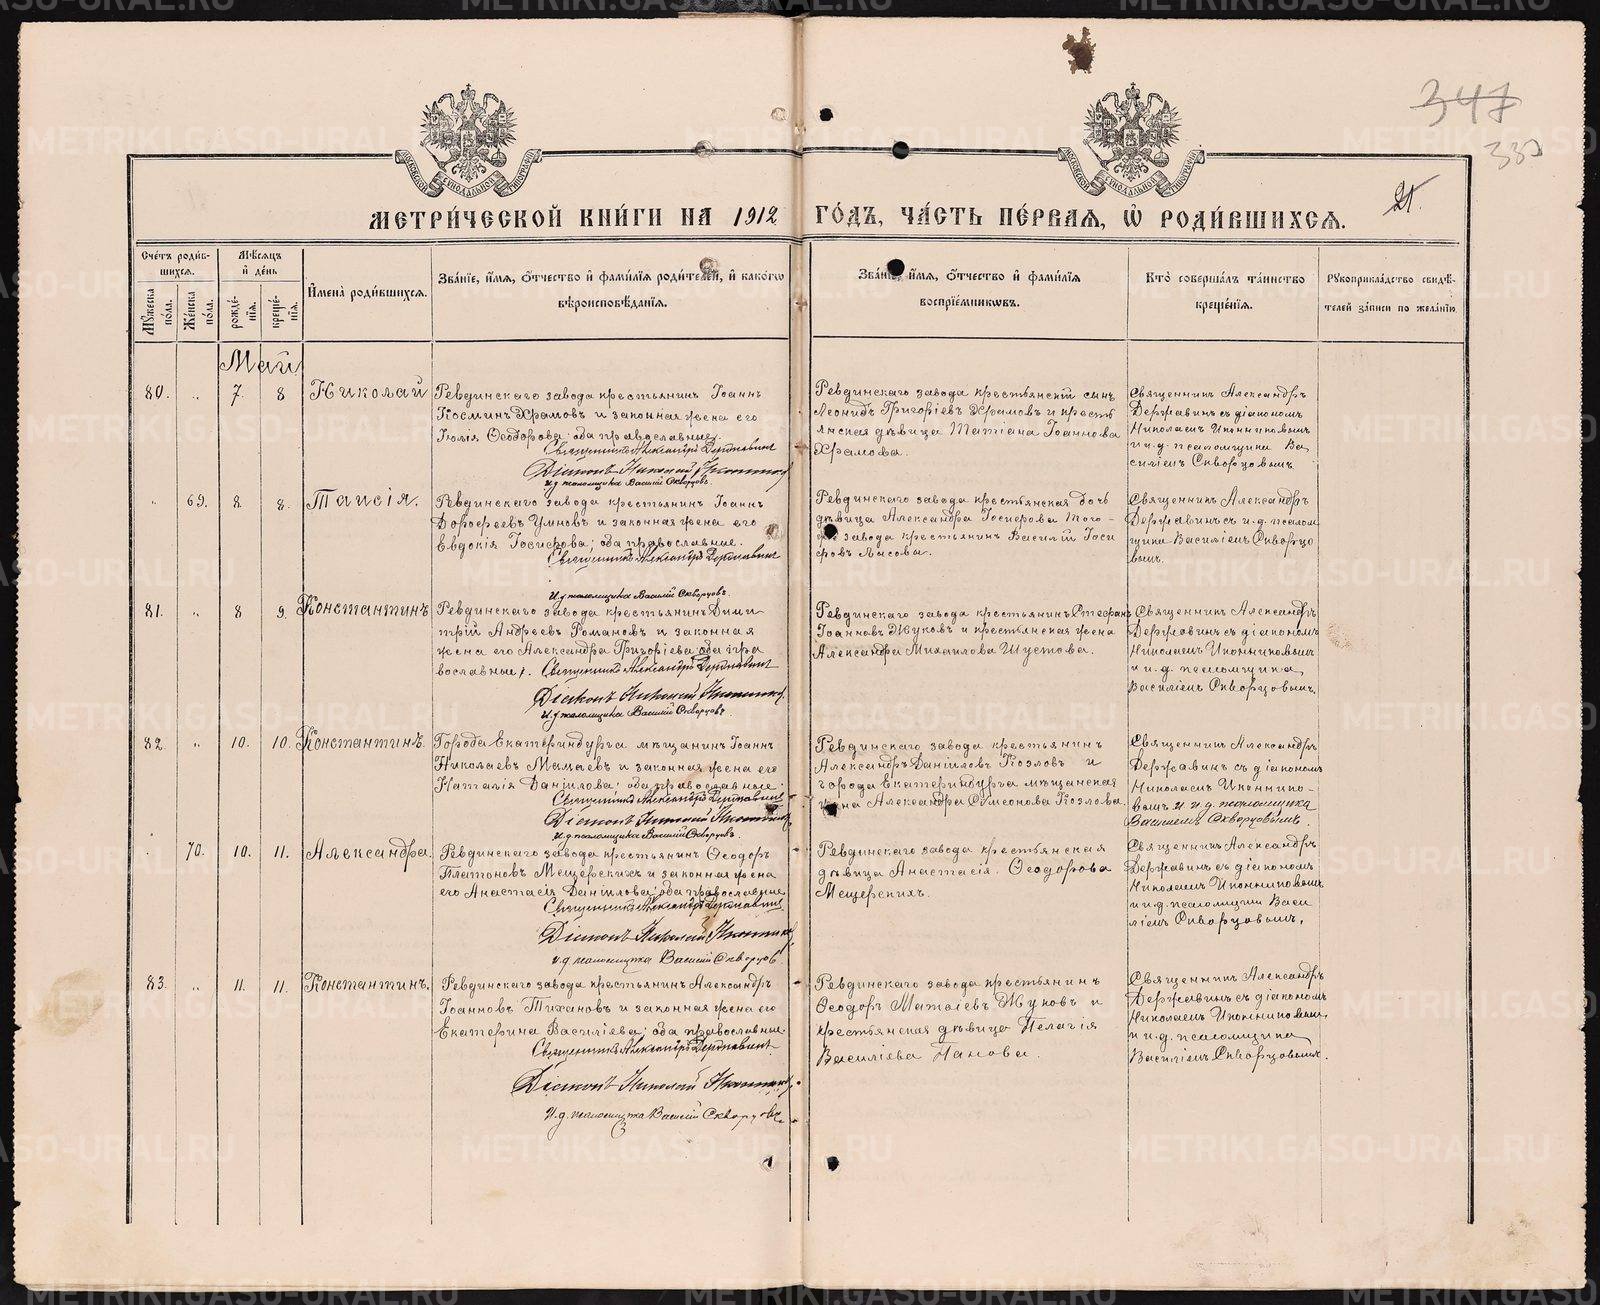 347
330
21.
МОСКОВСКОЙ СѴНОДАЛЬНОЙ ТИПОГРАФІИ
МОСКОВСКОЙ СѴНОДАЛЬНОЙ ТИПОГРАФІИ
МЕТРИ́ЧЕСКОЙ КНИ́ГИ НА 1912 ГО́ДЪ, ЧА́СТЬ ПЕ́РВАЯ, Ѡ҆ РОДИ́ВШИХСЯ.
Сче́тъ роди́в-
шихся.
Мꙋ́жеска по́ла.
Же́нска по́ла.
Мѣ́сяцъ
и҆ де́нь
рожде́-
нїя.
креще́-
нїя.
И҆мена̀ роди́вшихся.
Зва́нїе, и҆́мя, ѻ҆́тчество и҆ фами́лїя роди́телей, и҆ како́гѡ
вѣроисповѣ́данїя.
Зва́нїе, и҆́мя, ѻ҆́тчество и҆ фами́лїя
воспрїе́мникѡвъ.
Кто̀ соверша́лъ та́инство
креще́нїя.
Рꙋкоприкла́дство свидѣ́-
телей за́писи по жела́нїю
Май
80. „ 7. 8 Николай
Ревдинскаго завода крестьянинъ Іоаннъ
Космин Храмовъ и законная жена его
Юлія Ѳеодорова; оба православные.
Священникъ Александръ Державинъ
Діаконъ Николай Иконников
И. д. псаломщика Василій Скворцовъ.
Ревдинскаго завода крестьянскій сынъ
Леонидъ Григоріевъ Храмовъ и кресть
янская дѣвица Татіана Іоаннова
Храмова.
Священник Александръ
Державинъ съ діакономъ
Николаемъ Иконниковымъ
и и. д. псаломщика Ва
силіемъ Скворцовымъ.
„ 69. 8. 8. Таисія.
Ревдинскаго завода крестьянинъ Іоаннъ
Дороѳеевъ Умновъ и законная жена его
Евдокія Іосифова; оба православные.
Священникъ Александръ Державинъ
И. д. псаломщика Василій Скворцовъ.
Ревдинскаго завода крестьянская дочь
дѣвица Александра Іосифова того-
же завода крестьянинъ Василій Іоси
фовъ Ласовъ.
Священник Александръ
Державинъ съ и. д. псалом
щика Василіемъ Скворцо
вымъ.
81. „ 8 9. Константинъ
Ревдинскаго завода крестьянинъ Дими
трій Андреевъ Романовъ и законная
жена его Александра Григоріева; оба пра
вославные.
Священникъ Александръ Державинъ
Діаконъ Николай Иконников
И. д. псаломщика Василій Скворцовъ.
Ревдинскаго завода крестьянинъ Стефанъ
Іоанновъ Жуковъ и крестьянская жена
Александра Михаилова Шустова.
Священник Александръ
Державинъ съ діакономъ
Николаемъ Иконниковымъ
и и. д. псаломщика
Василіемъ Скворцовымъ.
82. „ 10. 10. Константинъ.
Города Екатеринбурга мѣщанинъ Іоаннъ
Николаевъ Мамаевъ и законная жена его
Наталія Даніилова; оба православные.
Священникъ Александръ Державинъ
Діаконъ Николай Иконников
И. д. псаломщика Василій Скворцовъ.
Ревдинскаго завода крестьянинъ
Александръ Даніиловъ Козловъ и
города Екатеринбурга мѣщанская
жена Александра Симеонова Козлова.
Священник Александръ
Державинъ съ діакономъ
Николаемъ Иконнико-
вымъ и и. д. псаломщика
Василіемъ Скворцовымъ.
70. 10. 11. Александра.
Ревдинскаго завода крестьянинъ Ѳеодоръ
Платоновъ Мещерских и законная жена
его Анастасія Даніилова; оба православные
Священникъ Александръ Державинъ
Діаконъ Николай Иконников
и. д. псаломщика Василій Скворцов
Ревдинскаго завода крестьянская
дѣвица Анастасія Ѳеодорова
Мещерских.
Священник Александръ
Державинъ съ діакономъ
Николаемъ Иконниковымъ
и и. д. псаломщика Васи
ліемъ Скворцовымъ.
83. „ 11. 11. Константинъ.
Ревдинскаго завода крестьянинъ Александръ
Іоанновъ Тихановъ и законная жена его
Екатерина Василіева; оба православные
Священникъ Александръ Державинъ.
Діаконъ Николай Иконников
И. д. псаломщика Василій Скворцовъ.
Ревдинскаго завода крестьянинъ
Ѳеодоръ Матѳіевъ Жуковъ и
крестьянская дѣвица Пелагія
Василіева Панова.
Священник Александръ
Державинъ съ діакономъ
Николаемъ Иконниковымъ
и и. д. псаломщика
Василіемъ Скворцовымъ.
METRIKI.GASO-URAL.RU